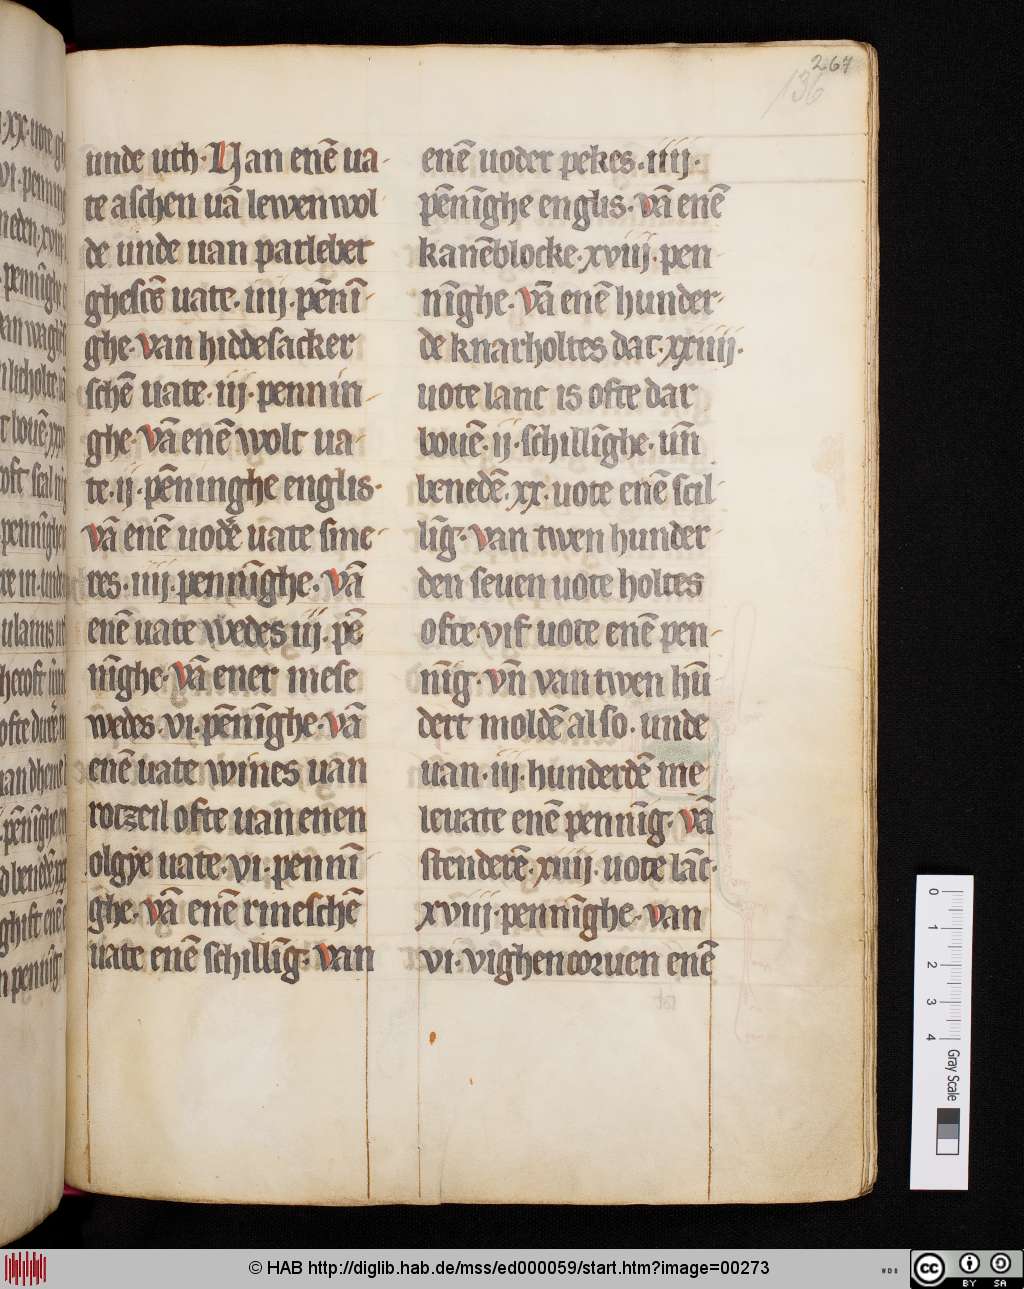 267
136
unde uth· Van enē ua-
te aſchen uā lewenwol
de unde uan parleber
gheſcē uate· iiij· pēnī-
ghe· van hiddeſacker
ſchē uate· iij· pennin-
ghe· vā enē wolt ua-
te· ij· pēninghe englis·
vā enē uodē uate ſme-
res· iiij· pennīghe· vā
enē uate wedes iij· pē
nīghe· vā ener meſe
wedes· vi· pēnīghe· vā
enē uate wines uan
rotzeil ofte uan enen
olgye uate· vi· pennī-
ghe· vā enē rineſchē
uate enē ſchillīg· van
enē uoder pekes· iiij·
pēnīghe englis· vā enē
kanēblocke· xviij· pen-
nīghe· vā enē hunder-
de knarholtes dat· xxiiij·
uote lanc is ofte dar
bouē· ij· ſchillīghe· un̄
benedē· xx· uote enē ſcil-
līg· van twen hunder-
den ſeuen uote holtes
ofte· vif uote enē pen-
nīg· vn̄ van twen hū-
dert moldē alſo· unde
uan· iij· hunderdē me-
leuate enē pennīg· vā
ſtenderē· xiiij· uote lāc·
xviij· pennīghe· van
vi· vighencoruen enē
© HAB http://diglib.hab.de/mss/ed000059/start.htm?image=00273
0
1
2
3
4
Gray Scale
cc
BY SA